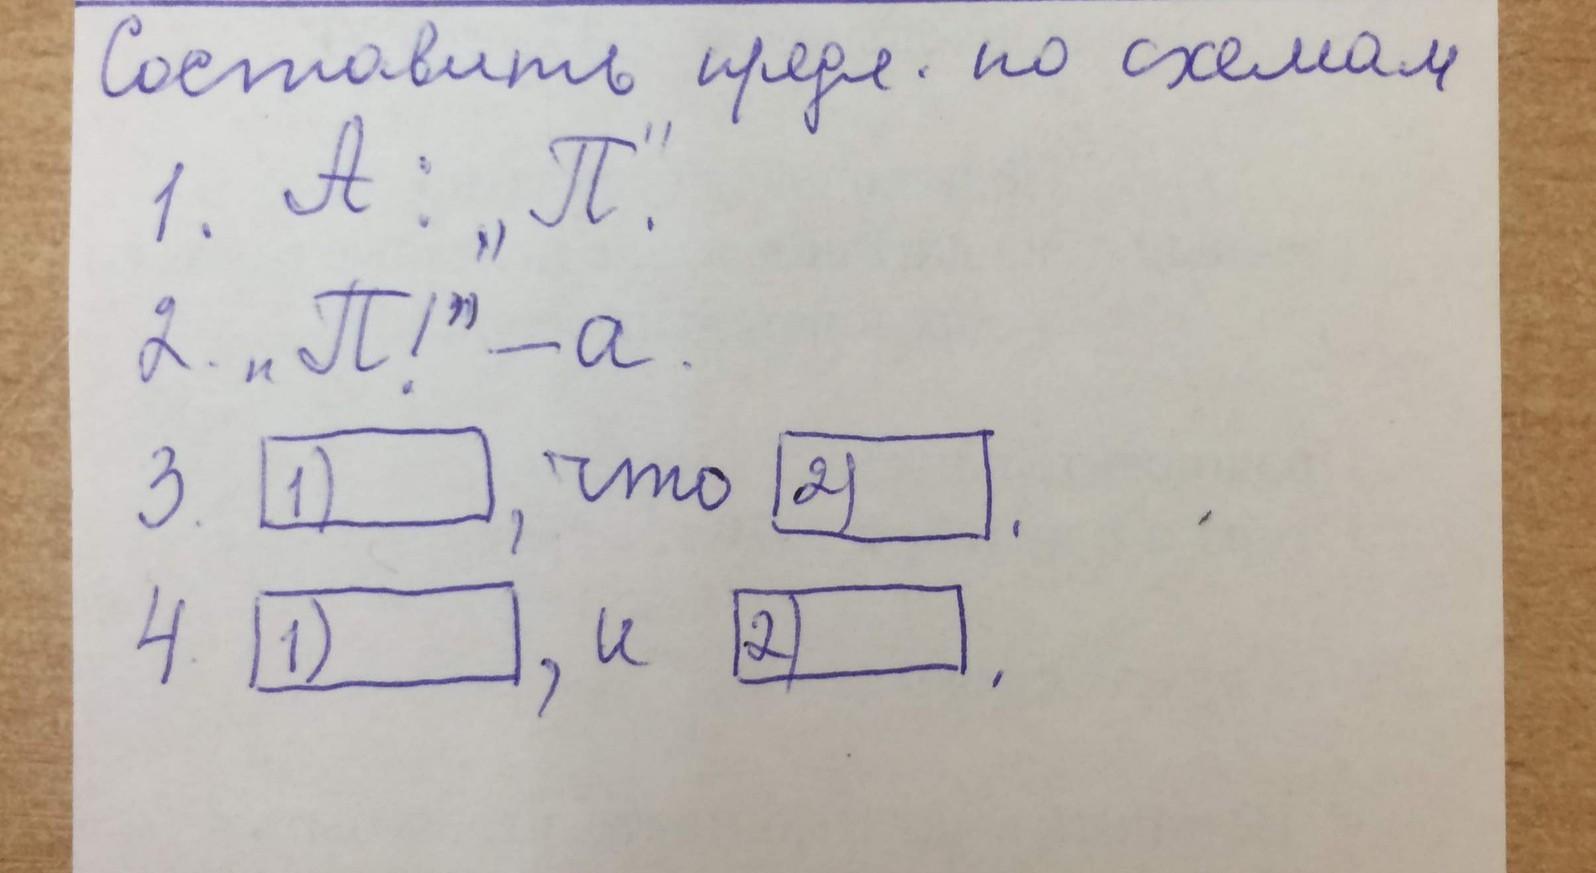 Составить предл. по схемам
1. А: „П".
2. „П!" – а.
3. 1) , что 2) .
4. 1) , и 2) .